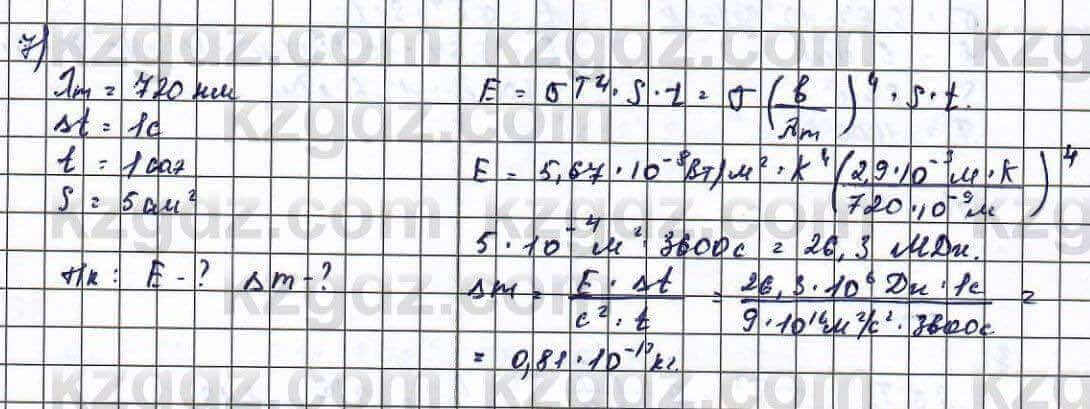 7)
λm = 720 нм
Δt = 1c
t = 1 саг
S = 5 см²
Т/к: E - ? Δm - ?
E = σT⁴ · S · t = σ (b / λm)⁴ · S · t.
E = 5,67 · 10⁻⁸ Вт/м² · К⁴ (2,9 · 10⁻³ м · К / 720 · 10⁻⁹ м)⁴
5 · 10⁻⁴ м² · 3600 с = 26,3 МДж.
Δm = E · Δt / c² · t = 26,3 · 10⁶ Дж · 1с / 9 · 10¹⁶ м²/с² · 3600 с =
= 0,81 · 10⁻¹³ кг.
kzgdz.com